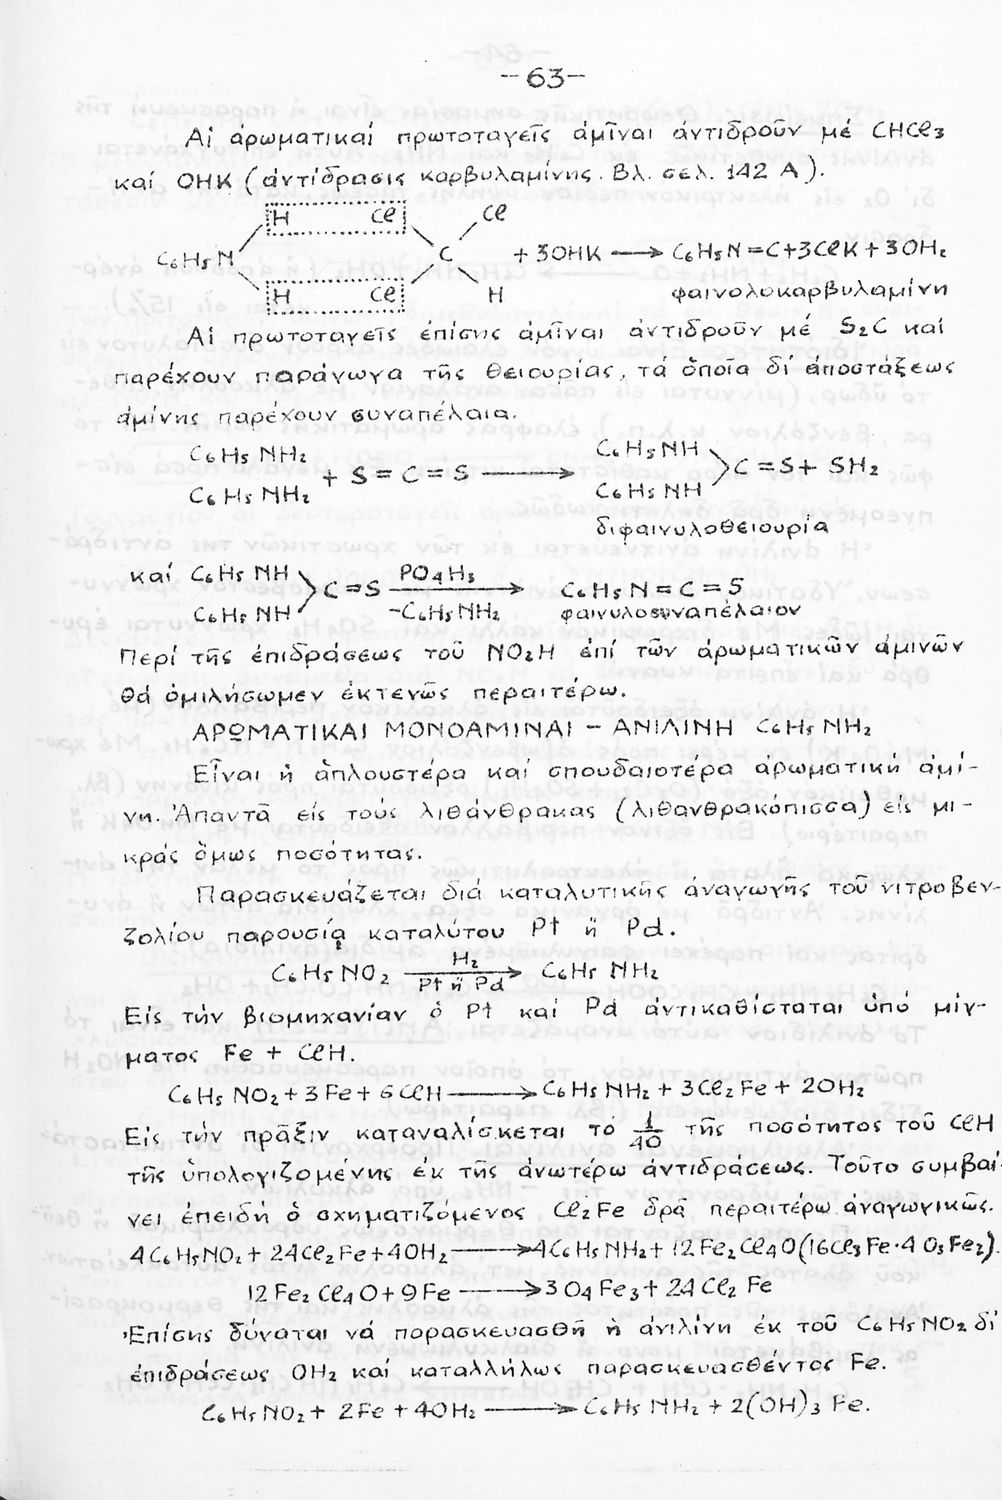 -63-
Αἱ ἀρωματικαί πρωτοταγεῖς ἀμῖναι ἀντιδροῦν μέ CHCl₃
καί OHK (ἀντίδρασις καρβυλαμίνης. Βλ. σελ. 142 Α).
H Cl Cl
C₆H₅N C + 3OHK ⟶ C₆H₅N=C+3ClK+3OH₂
H Cl H φαινολοκαρβυλαμίνη
Αἱ πρωτοταγεῖς ἐπίσης ἀμῖναι ἀντιδροῦν μέ S₂C καί
παρέχουν παράγωγα τῆς θειουρίας, τά ὁποῖα δί ἀποστάξεως
ἀμίνης παρέχουν συναπέλαια.
C₆H₅NH₂ C₆H₅NH
+ S=C=S ⟶ C=S+ SH₂
C₆H₅NH₂ C₆H₅NH
διφαινυλοθειουρία
καί C₆H₅NH C=S PO₄H₃ ⟶ C₆H₅N=C=S
C₆H₅NH -C₆H₅NH₂ φαινυλοσυναπέλαιον
Περί τῆς ἐπιδράσεως τοῦ NO₂H ἐπί τῶν ἀρωματικῶν ἀμινῶν
θά ὁμιλήσωμεν ἐκτενῶς περαιτέρω.
ΑΡΩΜΑΤΙΚΑΙ ΜΟΝΟΑΜΙΝΑΙ - ΑΝΙΛΙΝΗ C₆H₅NH₂
Εἶναι ἡ ἁπλουστέρα καί σπουδαιοτέρα ἀρωματική ἀμί-
νη. Ἀπαντᾶ εἰς τούς λιθάνθρακας (λιθανθρακόπισσα) εἰς μι-
κράς ὅμως ποσότητας.
Παρασκευάζεται διά καταλυτικῆς ἀναγωγῆς τοῦ νιτροβεν-
ζολίου παρουσίᾳ καταλύτου Pt ἤ Pd.
C₆H₅NO₂ H₂ ⟶ Pt ἤ Pd C₆H₅NH₂
Εἰς τήν βιομηχανίαν ὁ Pt καί Pd ἀντικαθίσταται ὑπό μίγ-
ματος Fe + ClH.
C₆H₅NO₂+3Fe+6ClH ⟶ C₆H₅NH₂+3Cl₂Fe+2OH₂
Εἰς τήν πρᾶξιν καταναλίσκεται τό 1/40 τῆς ποσότητος τοῦ ClH
τῆς ὑπολογιζομένης ἐκ τῆς ἀνωτέρω ἀντιδράσεως. Τοῦτο συμβαί-
νει ἐπειδή ὁ σχηματιζόμενος Cl₂Fe δρᾶ περαιτέρω ἀναγωγικῶς.
4C₆H₅NO₂+24Cl₂Fe+4OH₂ ⟶ 4C₆H₅NH₂+12Fe₂Cl₄O(16Cl₃Fe·4O₃Fe₂).
12Fe₂Cl₄O+9Fe ⟶ 3O₄Fe₃+24Cl₂Fe
Ἐπίσης δύναται νά παρασκευασθῆ ἡ ἀνιλίνη ἐκ τοῦ C₆H₅NO₂ δί
ἐπιδράσεως OH₂ καί καταλλήλως παρασκευασθέντος Fe.
C₆H₅NO₂+ 2Fe+4OH₂ ⟶ C₆H₅NH₂+2(OH)₃Fe.